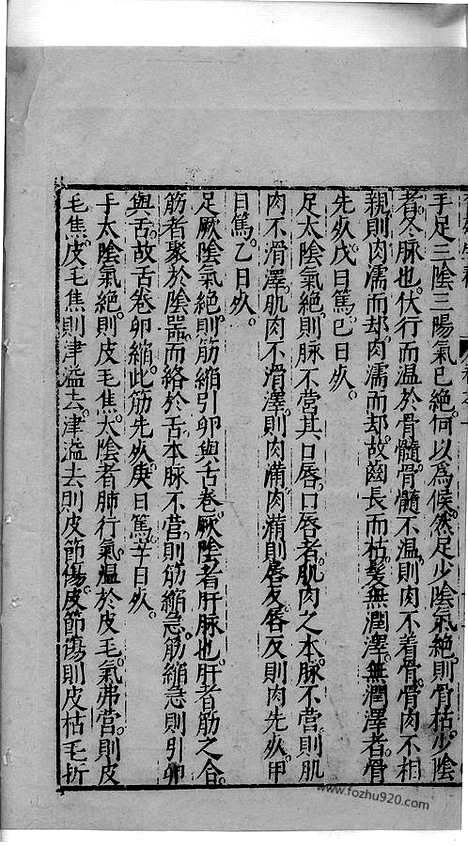 手足三陰三陽氣已絶何以為候然足少陰氣絶則骨枯少陰
者冬脉也伏行而温於骨髓骨髓不温則肉不着骨骨肉不相
親則肉濡而却肉濡而却故齒長而枯髮無潤澤無潤澤者骨
先𣦸戊日篤已日𣦸
足太陰氣絶則脉不營其口唇口唇者肌肉之本脉不營則肌
肉不滑澤肌肉不滑澤則肉滿肉滿則唇反唇反則肉先𣦸甲
日篤乙日𣦸
足厥陰氣絶則筋縮引卵與舌卷厥陰者肝脉也肝者筋之合
筋者聚於陰噐而絡於舌本脉不營則筋縮急筋縮急則引卵
與舌故舌卷卵縮此筋先𣦸庚日篤辛日𣦸
手太陰氣絶則皮毛焦太陰者肺行氣温於皮毛氣弗營則皮
毛焦皮毛焦則津溢去津溢去則皮節傷皮節傷則皮枯毛折
www.fozhu920.com